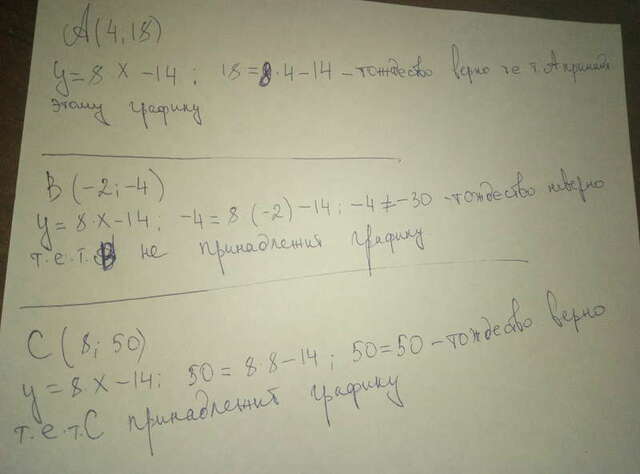 A(4;18)
y=8x-14; 18=8·4-14 – тождество верно т.е т.А принад
этому графику
B(-2;-4)
y=8·x-14; -4=8(-2)-14; -4≠-30 – тождество неверно
т.е.т.В не принадлежит графику.
C(8; 50)
y=8·x-14; 50=8·8-14; 50=50 – тождество верно
т.е.т.С принадлежит графику